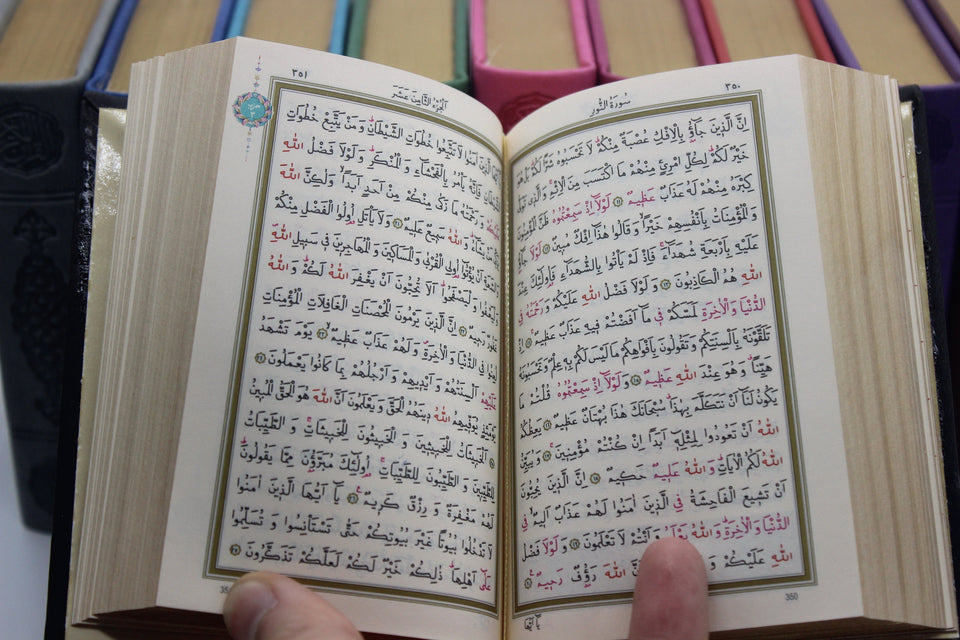 سُورَةُ النُّورِ
٣٥٠
اِنَّ الَّذ۪ينَ جَٓاؤُ۫ بِالْاِفْكِ عُصْبَةٌ مِنْكُمْۜ لَا تَحْسَبُوهُ شَرًّا لَكُمْۜ بَلْ هُوَ
خَيْرٌ لَكُمْۜ لِكُلِّ امْرِئٍ مِنْهُمْ مَا اكْتَسَبَ مِنَ الْاِثْمِۚ وَالَّذ۪ي تَوَلّٰى
كِبْرَهُ مِنْهُمْ لَهُ عَذَابٌ عَظ۪يمٌ ١١ لَوْلَٓا اِذْ سَمِعْتُمُوهُ ظَنَّ الْمُؤْمِنُونَ
وَالْمُؤْمِنَاتُ بِاَنْفُسِهِمْ خَيْرًاۙ وَقَالُوا هٰذَٓا اِفْكٌ مُب۪ينٌ ١٢ لَوْلَا جَٓاؤُ۫
عَلَيْهِ بِاَرْبَعَةِ شُهَدَٓاءَۚ فَاِذْ لَمْ يَأْتُوا بِالشُّهَدَٓاءِ فَاُو۬لٰٓئِكَ عِنْدَ
اللّٰهِ هُمُ الْكَاذِبُونَ ١٣ وَلَوْلَا فَضْلُ اللّٰهِ عَلَيْكُمْ وَرَحْمَتُهُ فِي
الدُّنْيَا وَالْاٰخِرَةِ لَمَسَّكُمْ ف۪ي مَٓا اَفَضْتُمْ ف۪يهِ عَذَابٌ عَظ۪يمٌ ١٤ اِذْ
تَلَقَّوْنَهُ بِاَلْسِنَتِكُمْ وَتَقُولُونَ بِاَفْوَاهِكُمْ مَا لَيْسَ لَكُمْ بِه۪ عِلْمٌ وَتَحْسَبُونَهُ
هَيِّنًاۗ وَهُوَ عِنْدَ اللّٰهِ عَظ۪يمٌ ١٥ وَلَوْلَٓا اِذْ سَمِعْتُمُوهُ قُلْتُمْ مَا
يَكُونُ لَنَٓا اَنْ نَتَكَلَّمَ بِهٰذَاۗ سُبْحَانَكَ هٰذَا بُهْتَانٌ عَظ۪يمٌ ١٦ يَعِظُكُمُ
اللّٰهُ اَنْ تَعُودُوا لِمِثْلِه۪ٓ اَبَدًا اِنْ كُنْتُمْ مُؤْمِن۪ينَ ١٧ وَيُبَيِّنُ
اللّٰهُ لَكُمُ الْاٰيَاتِۜ وَاللّٰهُ عَل۪يمٌ حَك۪يمٌ ١٨ اِنَّ الَّذ۪ينَ يُحِبُّونَ
اَنْ تَش۪يعَ الْفَاحِشَةُ فِي الَّذ۪ينَ اٰمَنُوا لَهُمْ عَذَابٌ اَل۪يمٌۙ فِي
الدُّنْيَا وَالْاٰخِرَةِۜ وَاللّٰهُ يَعْلَمُ وَاَنْتُمْ لَا تَعْلَمُونَ ١٩ وَلَوْلَا فَضْلُ
اللّٰهِ عَلَيْكُمْ اللّٰهَ رَؤُ۫فٌ رَح۪يمٌ ٢٠
350
يَٓا اَيُّهَا
اَلْجُزْءُ الثَّامِنَ عَشَرَ
٣٥١
الَّذ۪ينَ اٰمَنُوا لَا تَتَّبِعُوا خُطُوَاتِ الشَّيْطَانِۜ وَمَنْ يَتَّبِعْ خُطُوَاتِ
فَاِنَّهُ يَأْمُرُ بِالْفَحْشَٓاءِ وَالْمُنْكَرِۜ وَلَوْلَا فَضْلُ اللّٰهِ
وَرَحْمَتُهُ مَا زَكٰى مِنْكُمْ مِنْ اَحَدٍ اَبَدًاۙ وَلٰكِنَّ اللّٰهَ
مَنْ يَشَٓاءُۜ وَاللّٰهُ سَم۪يعٌ عَل۪يمٌ ٢١ وَلَا يَأْتَلِ اُو۬لُوا الْفَضْلِ مِنْكُمْ
اَنْ يُؤْتُٓوا اُو۬لِي الْقُرْبٰى وَالْمَسَاك۪ينَ وَالْمُهَاجِر۪ينَ ف۪ي سَب۪يلِ اللّٰهِۖ
وَلْيَصْفَحُواۜ اَلَا تُحِبُّونَ اَنْ يَغْفِرَ اللّٰهُ لَكُمْۜ وَاللّٰهُ
غَفُورٌ رَح۪يمٌ ٢٢ اِنَّ الَّذ۪ينَ يَرْمُونَ الْمُحْصَنَاتِ الْغَافِلَاتِ الْمُؤْمِنَاتِ
لُعِنُوا فِي الدُّنْيَا وَالْاٰخِرَةِۖ وَلَهُمْ عَذَابٌ عَظ۪يمٌۙ ٢٣ يَوْمَ تَشْهَدُ
عَلَيْهِمْ اَلْسِنَتُهُمْ وَاَيْد۪يهِمْ وَاَرْجُلُهُمْ بِمَا كَانُوا يَعْمَلُونَ ٢٤
يَوْمَئِذٍ يُوَفّ۪يهِمُ اللّٰهُ د۪ينَهُمُ الْحَقَّ وَيَعْلَمُونَ اَنَّ اللّٰهَ هُوَ الْحَقُّ الْمُب۪ينُ
٢٥ اَلْخَب۪يثَاتُ لِلْخَب۪يث۪ينَ وَالْخَب۪يثُونَ لِلْخَب۪يثَاتِۚ وَالطَّيِّبَاتُ
لِلطَّيِّب۪ينَ وَالطَّيِّبُونَ لِلطَّيِّبَاتِۚ اُو۬لٰٓئِكَ مُبَرَّؤُ۫نَ مِمَّا يَقُولُونَۜ
لَهُمْ مَغْفِرَةٌ وَرِزْقٌ كَر۪يمٌ ٢٦ يَٓا اَيُّهَا الَّذ۪ينَ اٰمَنُوا
لَا تَدْخُلُوا بُيُوتًا غَيْرَ بُيُوتِكُمْ حَتّٰى تَسْتَأْنِسُوا وَتُسَلِّمُوا
عَلٰٓى اَهْلِهَاۜ ذٰلِكُمْ خَيْرٌ لَكُمْ لَعَلَّكُمْ تَذَكَّرُونَ ٢٧